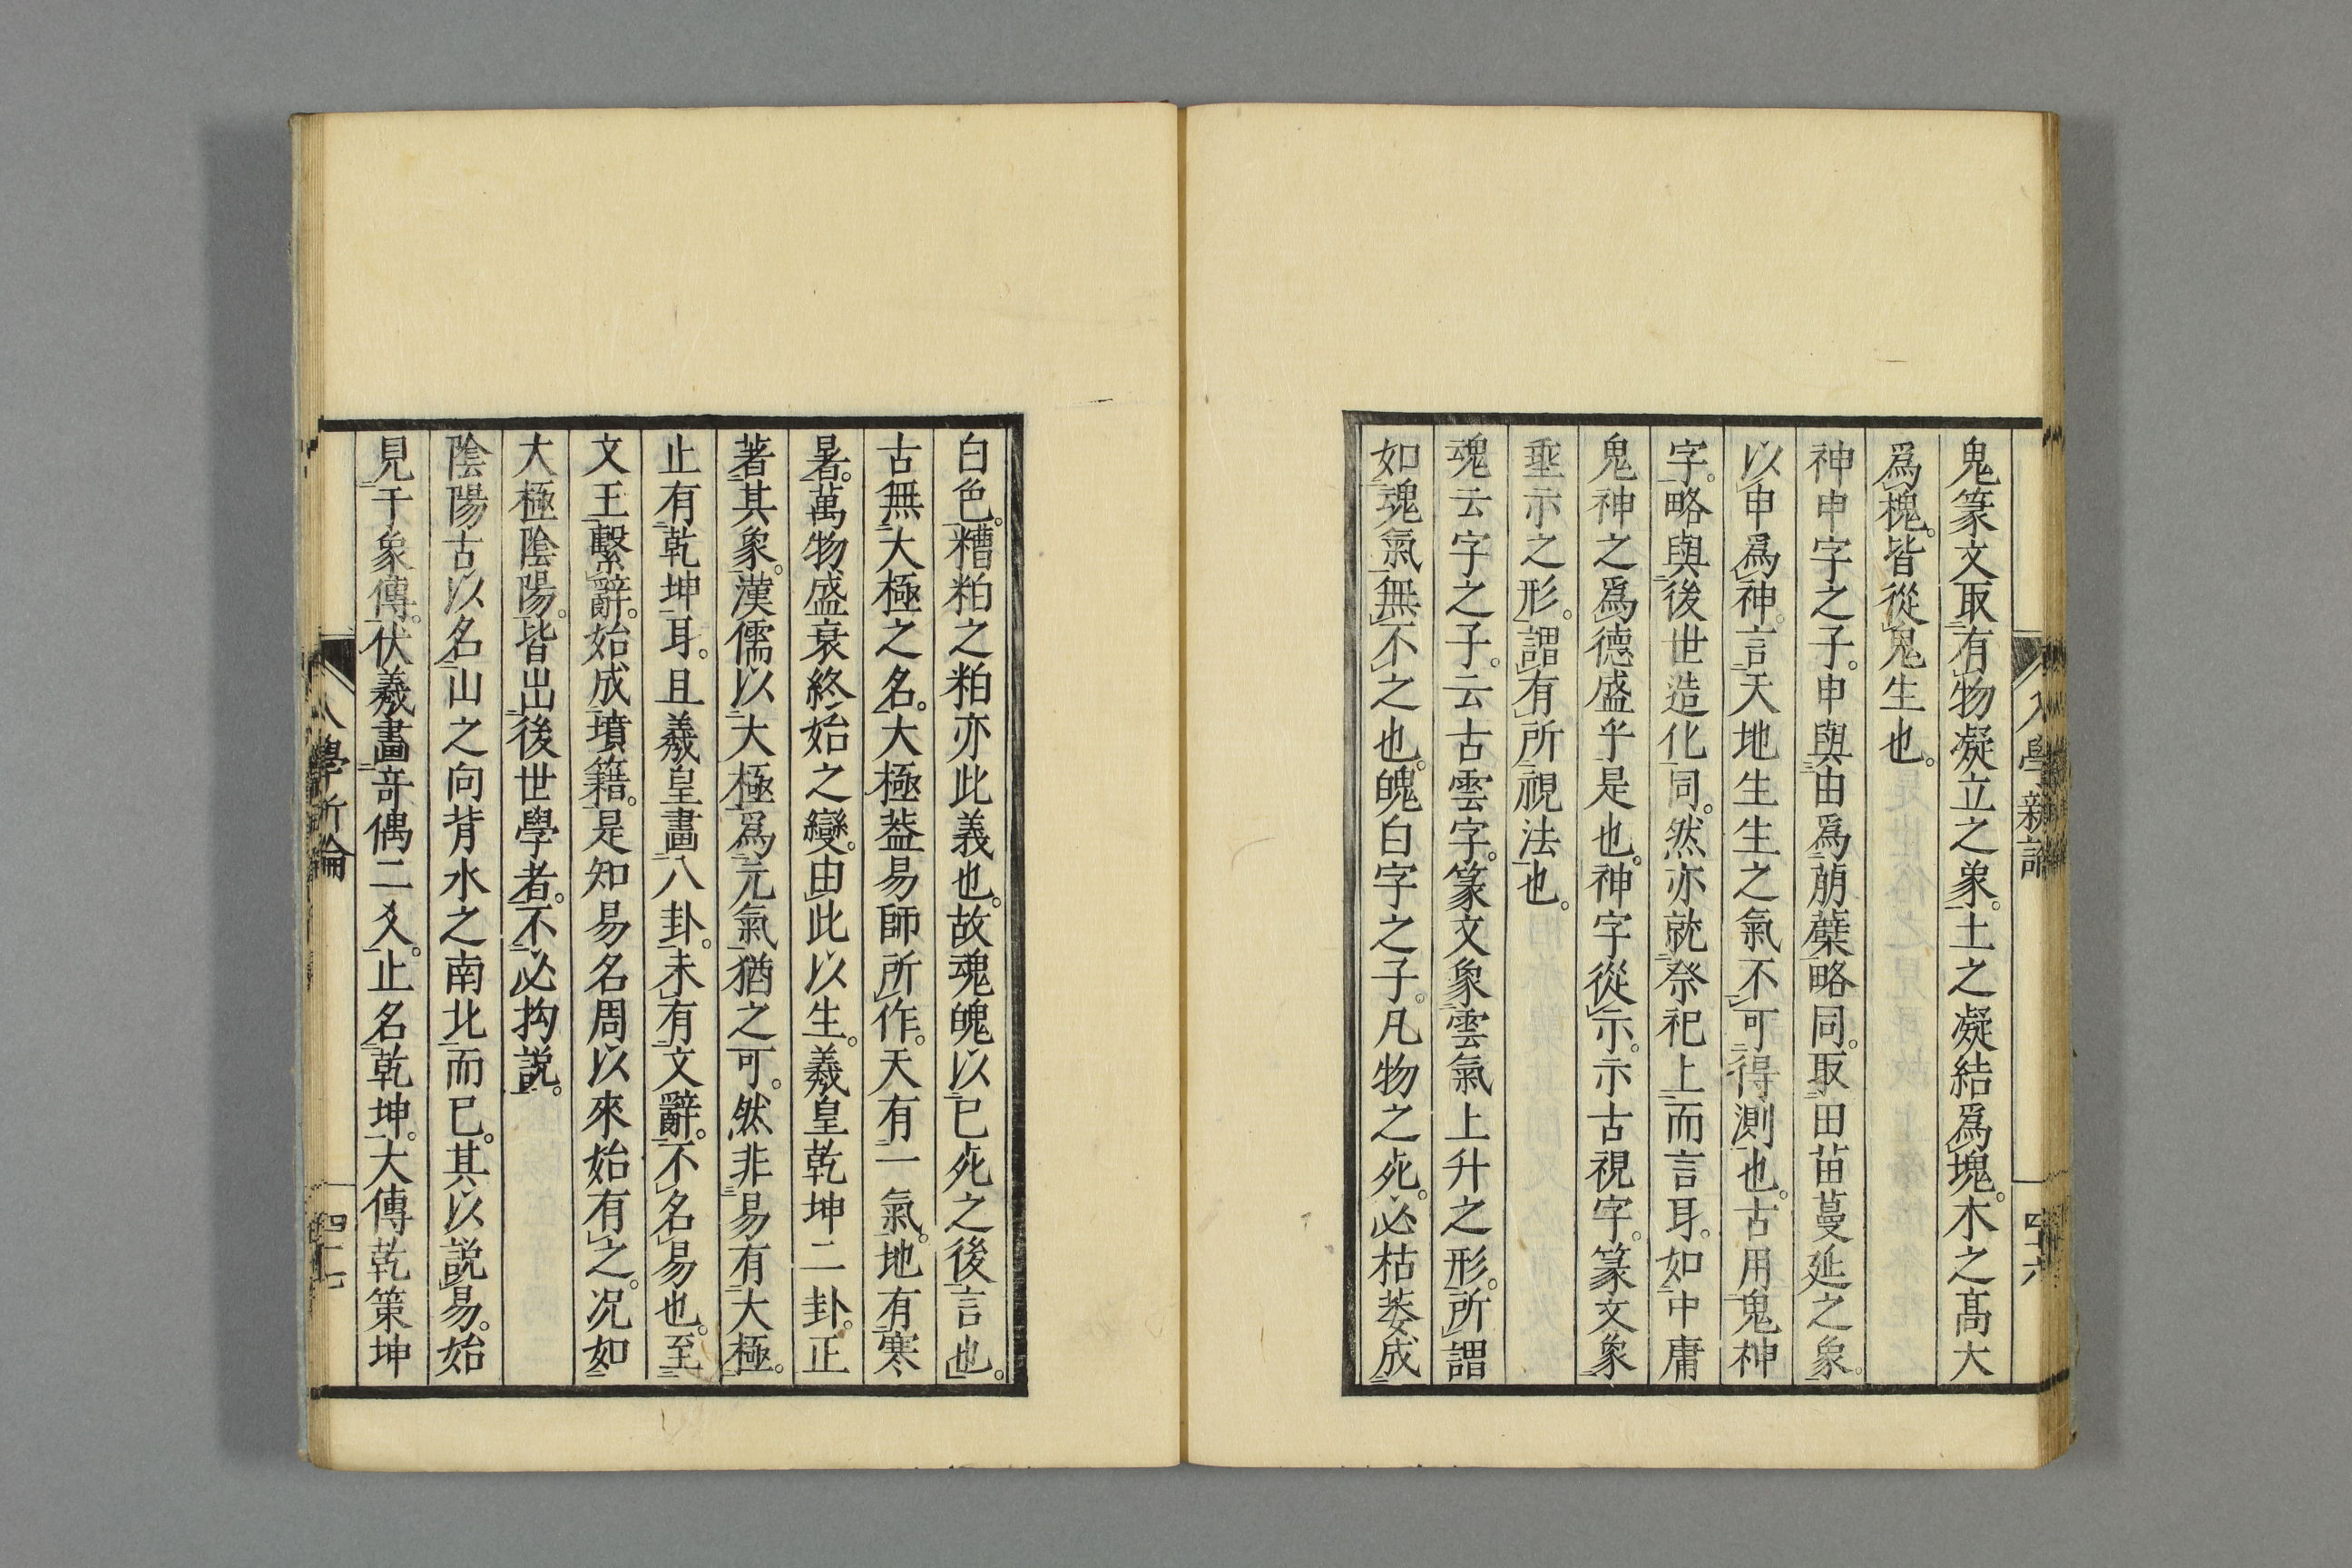 入學新論
四十六
鬼篆文取有物凝立之象。土之凝結爲塊。木之高大
爲槐。皆從鬼生也。
神申字之子。申與由爲萠蘖略同。取田苗蔓延之象。
以申爲神。言天地生生之氣不可得測也。古用鬼神
字。略與後世造化同。然亦就祭祀上而言耳。如中庸
鬼神之爲德盛乎是也。神字從示。示古視字。篆文象
垂示之形。謂有所視法也。
魂云字之子。云古雲字。篆文象雲氣上升之形。所謂
如魂氣無不之也。魄白字之子。凡物之死。必枯萎成
白色。糟粕之粕亦此義也。故魂魄以已死之後言也。
古無大極之名。大極葢易師所作。天有一氣。地有寒
暑。萬物盛衰終始之變。由此以生。羲皇乾坤二卦。正
著其象。漢儒以大極爲元氣猶之可。然非易有大極。
止有乾坤耳。且羲皇畫八卦。未有文辭。不名易也。至
文王繫辭。始成墳籍。是知易名周以來始有之。况如
大極陰陽。皆出後世學者。不必拘説。
陰陽古以名山之向背水之南北而已。其以説易。始
見于象傳。伏羲畫奇偶二爻。止名乾坤。大傳乾策坤
入學新論
四十七